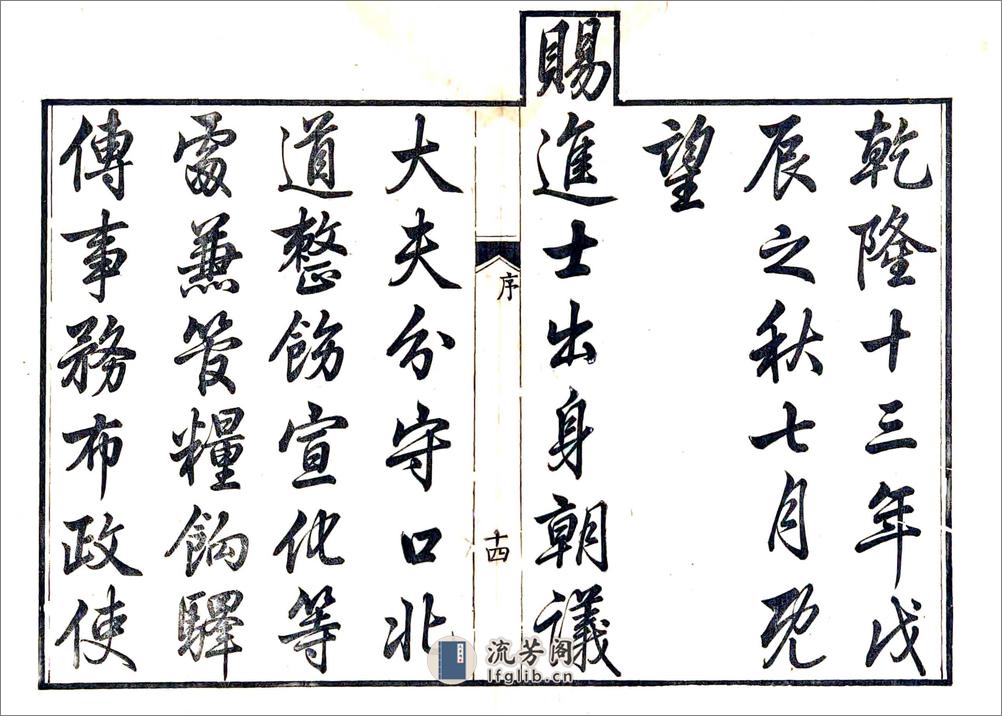 乾隆十三年戊
辰之秋七月既
望
賜進士出身朝議
序
十四
大夫分守口北
道整飭宣化等
處兼管糧餉驛
傳事務布政使
流芳阁
lfglib.cn